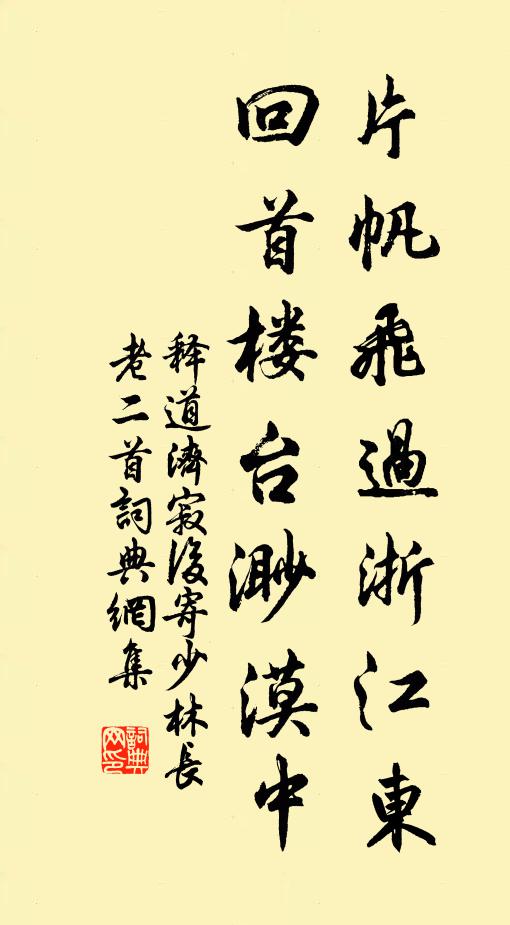 片帆飛過浙江東
回首楼台渺漠中
释道濟寂後寄少林長
老二首詞典網集
詞典
网印